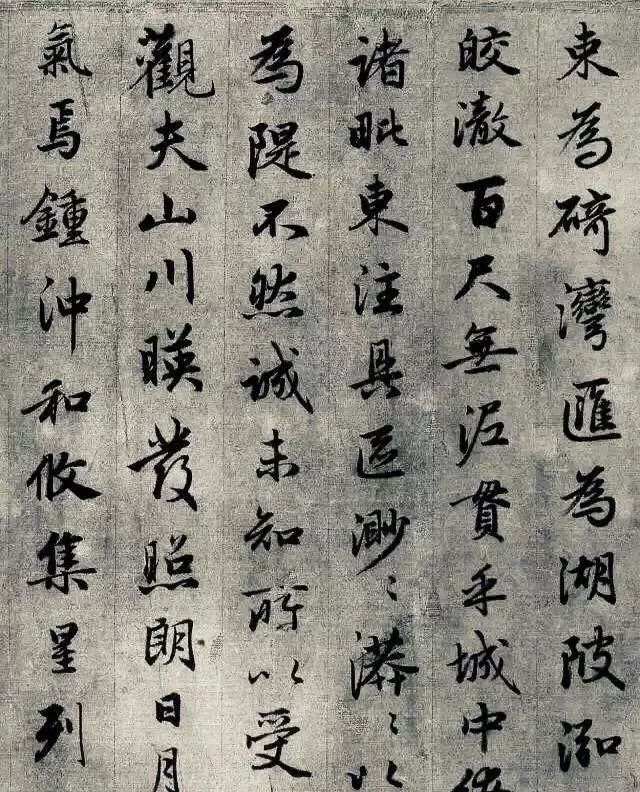 束為碕灣匯為湖陂泓
皎澈百尺無泥貫乎城中
諸毗東注具區渺〻漭〻以
為隄不然誠未知所以受
觀夫山川暎發照朗日月
氣焉鍾沖和攸集星列